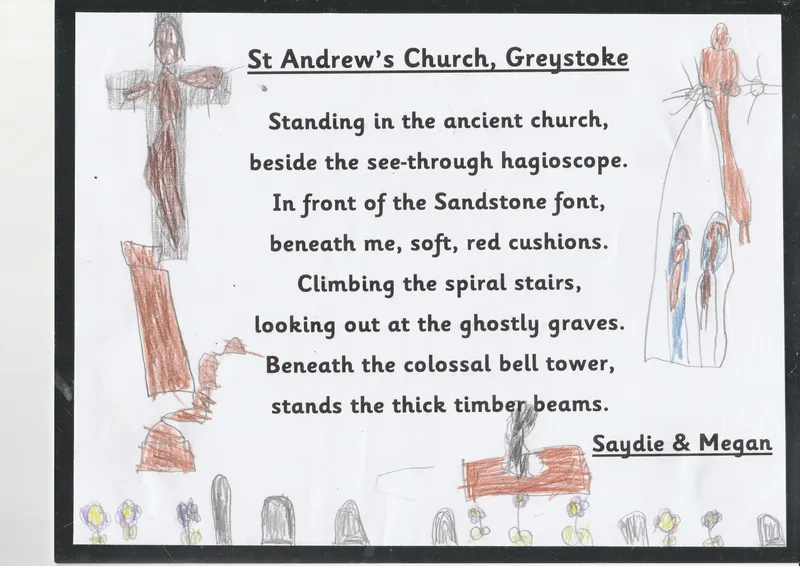 St Andrew's Church, Greystoke
Standing in the ancient church,
beside the see-through hagioscope.
In front of the Sandstone font,
beneath me, soft, red cushions.
Climbing the spiral stairs,
looking out at the ghostly graves.
Beneath the colossal bell tower,
stands the thick timber beams.
Saydie & Megan